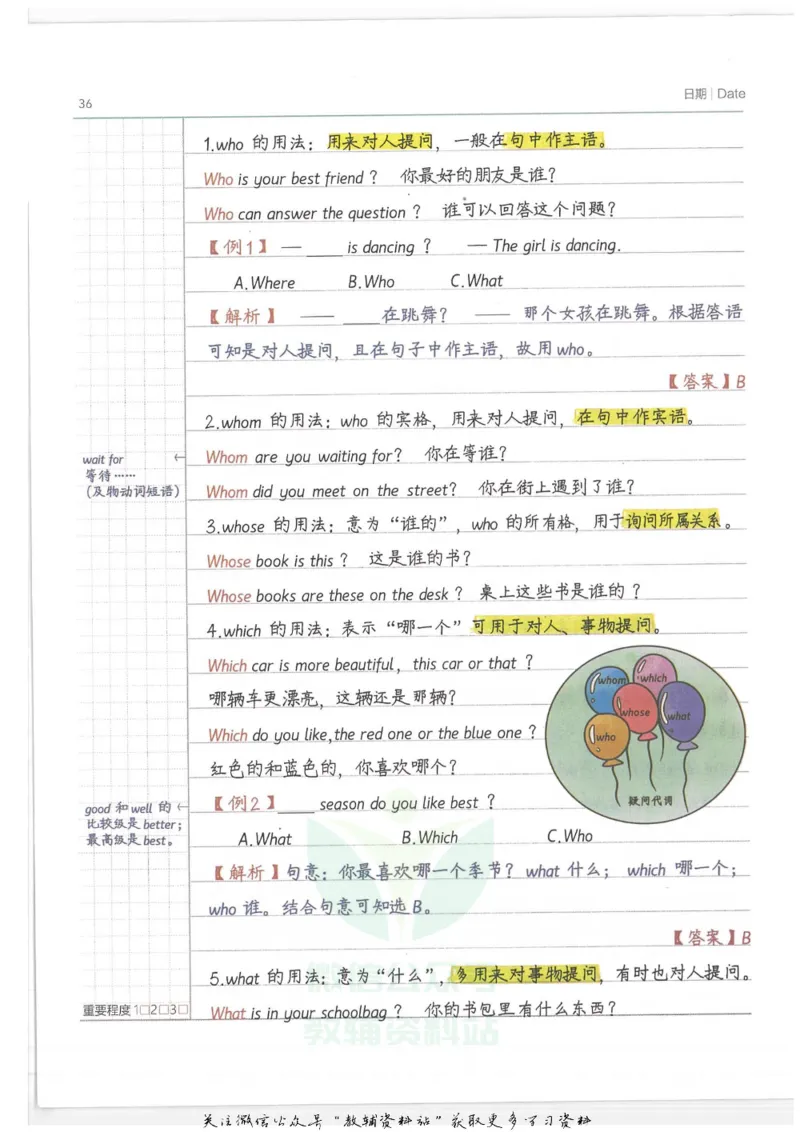 36
日期 | Date
1.who 的用法：用来对人提问，一般在句中作主语。
Who is your best friend ？ 你最好的朋友是谁？
Who can answer the question ？ 谁可以回答这个问题？
【例1】— ____ is dancing ？ — The girl is dancing.
A.Where B.Who C.What
【解析】 —— ____在跳舞？ —— 那个女孩在跳舞。根据答语
可知是对人提问，且在句子中作主语，故用who。
【答案】B
2.whom 的用法：who 的宾格，用来对人提问，在句中作宾语。
wait for
等待……
（及物动词短语）
Whom are you waiting for？ 你在等谁？
Whom did you meet on the street？ 你在街上遇到了谁？
3.whose 的用法：意为“谁的”，who 的所有格，用于询问所属关系。
Whose book is this ？ 这是谁的书？
Whose books are these on the desk ？ 桌上这些书是谁的 ？
4.which 的用法：表示“哪一个”可用于对人、事物提问。
Which car is more beautiful，this car or that ？
哪辆车更漂亮，这辆还是那辆？
Which do you like,the red one or the blue one ？
红色的和蓝色的，你喜欢哪个？
whom
which
whose
what
who
疑问代词
good 和 well 的
比较级是 better；
最高级是 best。
【例2】____ season do you like best ？
A.What B.Which C.Who
【解析】句意：你最喜欢哪一个季节？ what 什么； which 哪一个；
who 谁。结合句意可知选 B。
【答案】B
5.what 的用法：意为“什么”，多用来对事物提问，有时也对人提问。
What is in your schoolbag ？ 你的书包里有什么东西？
重要程度 1□2□3□
教辅资料站
关注微信公众号“教辅资料站”获取更多学习资料